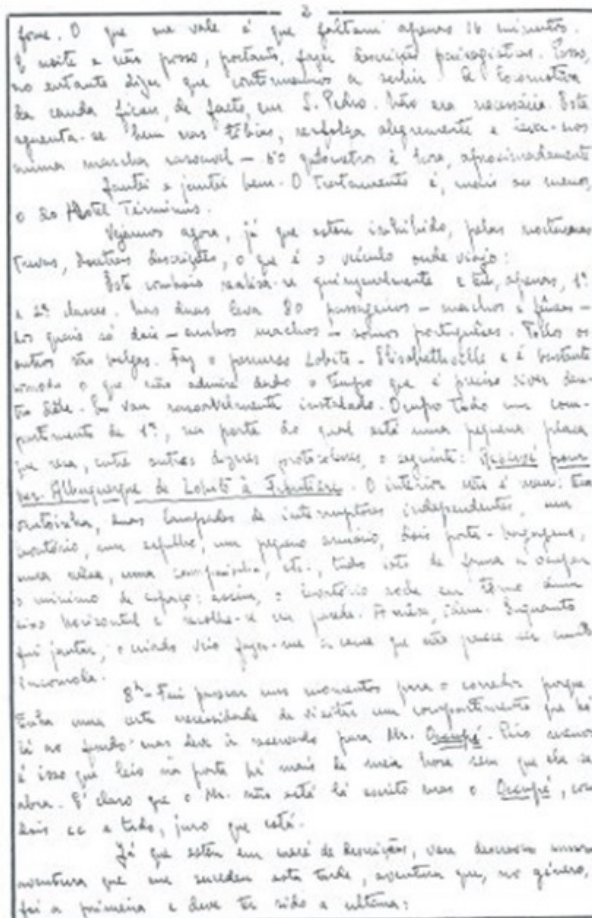 2
fome. O que me vale é que faltam apenas 16 minutos.
É noite e não posso, portanto, fazer descrição paisagística. Posso,
no entanto dizer que continuamos a subir. A locomotiva
da cauda ficou, de facto, em S. Pedro. Não era necessária. Esta
aguenta-se bem nas tíbias, resfolga alegremente e leva-nos
numa marcha rasoavel — 50 quilometros à hora, aproximadamente
Jantei e jantei bem. O tratamento é, mais ou menos,
o do Hotel Términus.
Vejamos agora, já que estou inhibido, pelas
trevas, doutras descrições, o que é o veículo onde viajo:
Este comboio realiza-se quinzenalmente e tem, apenas, 1ª
e 2ª classes. Nas duas leva 80 passageiros — machos e fêmeas —
dos quais só dois — ambos machos — somos portugueses. Todos os
outros são belgas. Faz o percurso Lobito - Elisabethville e é bastante
cómodo o que não admira dado o tempo que é preciso viver den-
tro dêle. Eu vou rasoavelmente instalado. Ocupo todo um com-
partimento de 1ª, na porta do qual está uma pequena placa
que resa, entre outros dizeres protocolares, o seguinte: Réservé pour
Albuquerque de Lobito à Frontière. O interior não é mau: tem
duas lampadas de interruptores independentes, um
lavatório, um espelho, um pequeno armário, dois porta-bagagens,
uma mêsa, uma campainha, etc., tudo isto de forma a ocupar
o minimo de espaço: assim, o lavatório roda em tôrno dum
eixo horizontal e recolhe-se na parede. A mêsa, idem. Enquanto
fui jantar, o criado veio fazer-me a cama que não parece ser muito
incomoda.
8h - Fui passar uns momentos para o corredor porque
tinha uma certa necessidade de visitar um compartimento que há
lá ao fundo mas deve ir reservado para Mr. Occupé. Pelo menos
é isso que leio na porta há mais de meia hora sem que ela se
abra. É claro que o Mr. não está lá escrito mas o Occupé, com
dois cc e tudo, juro que está.
Já que estou em maré de descrições, vou descrever uma
aventura que me sucedeu esta tarde, aventura que, no género,
foi a primeira e deve ter sido a ultima: